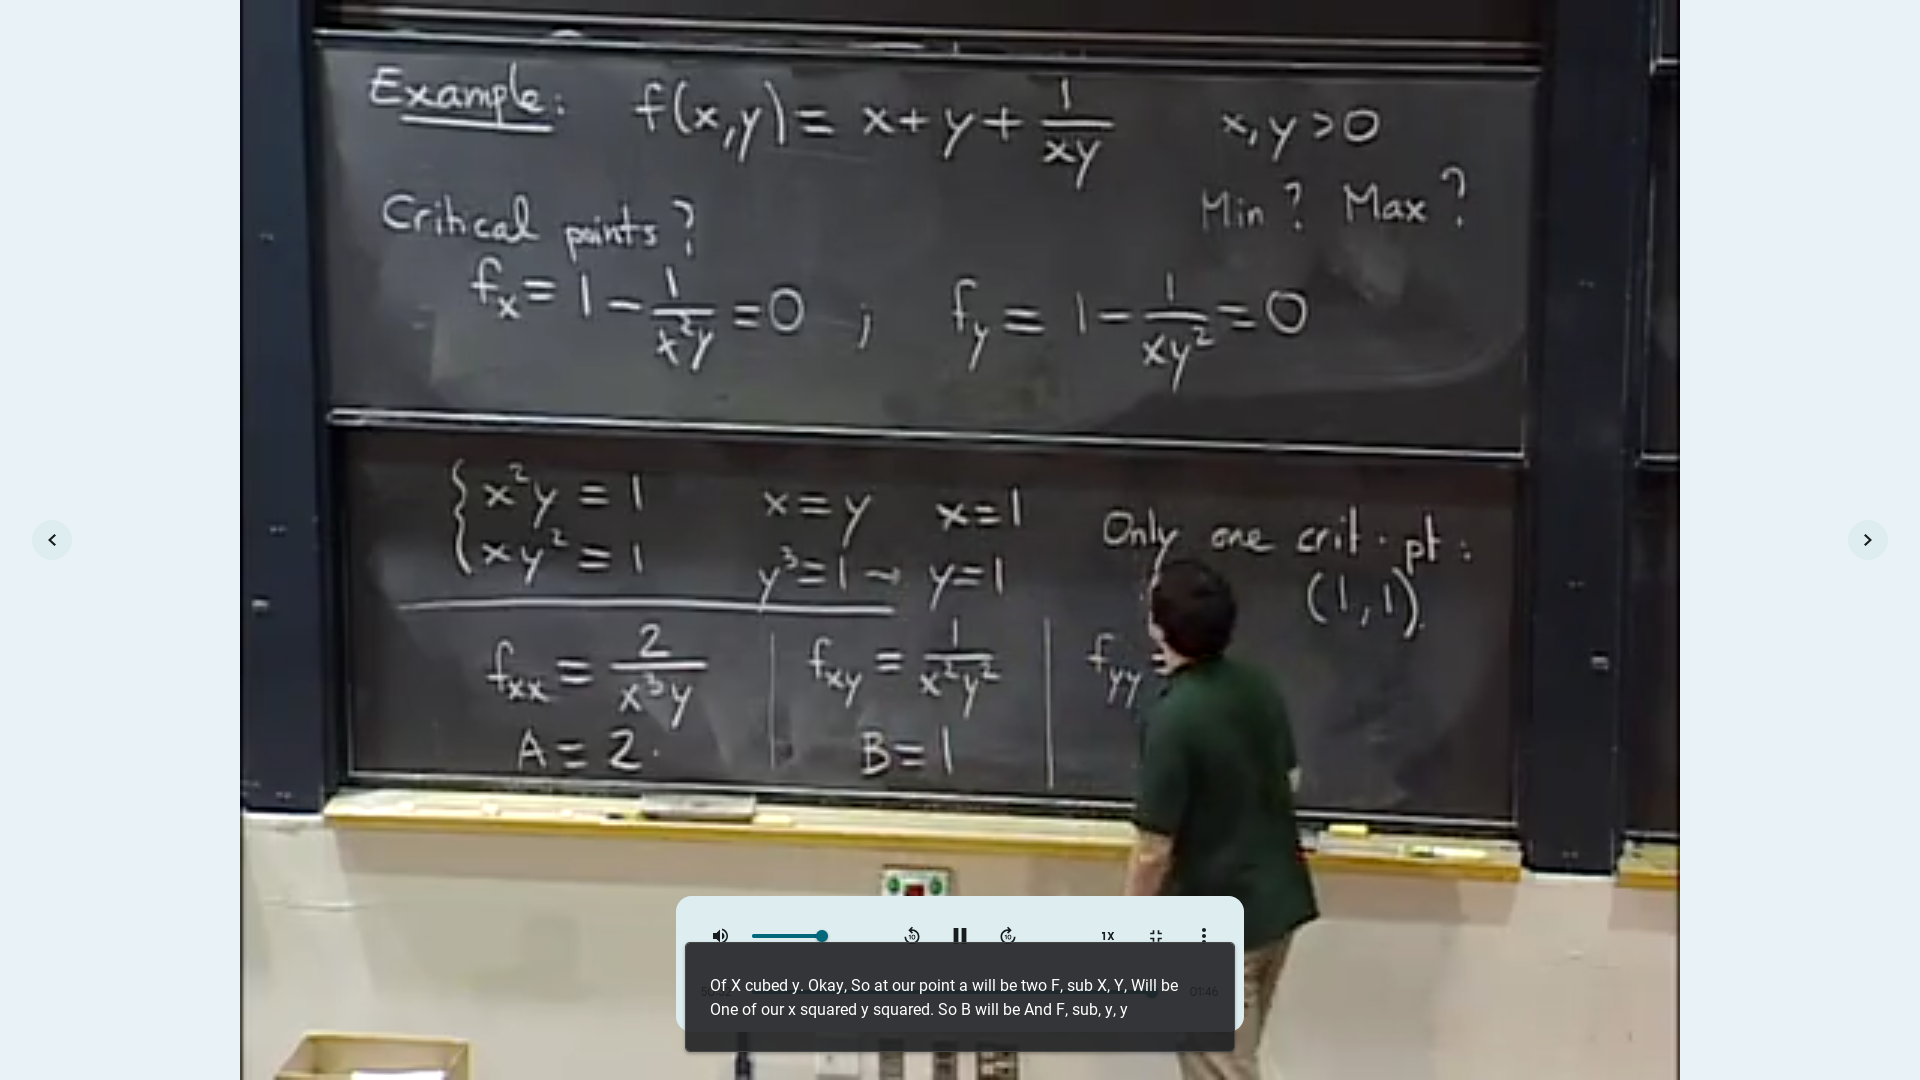 Example: f(x,y) = x+y+ 1/xy x,y >0
Min? Max?
Critical points?
fx = 1 - 1/x²y =0 ; fy = 1 - 1/xy² = 0
{ x²y = 1 x=y x=1 Only one crit. pt:
xy² = 1 y³=1 → y=1 (1,1).
fxx = 2/x³y | fxy = 1/x²y² | fyy =
A = 2. B=1
1X
01:46
Of X cubed y. Okay, So at our point a will be two F, sub X, Y, Will be
One of our x squared y squared. So B will be And F, sub, y, y